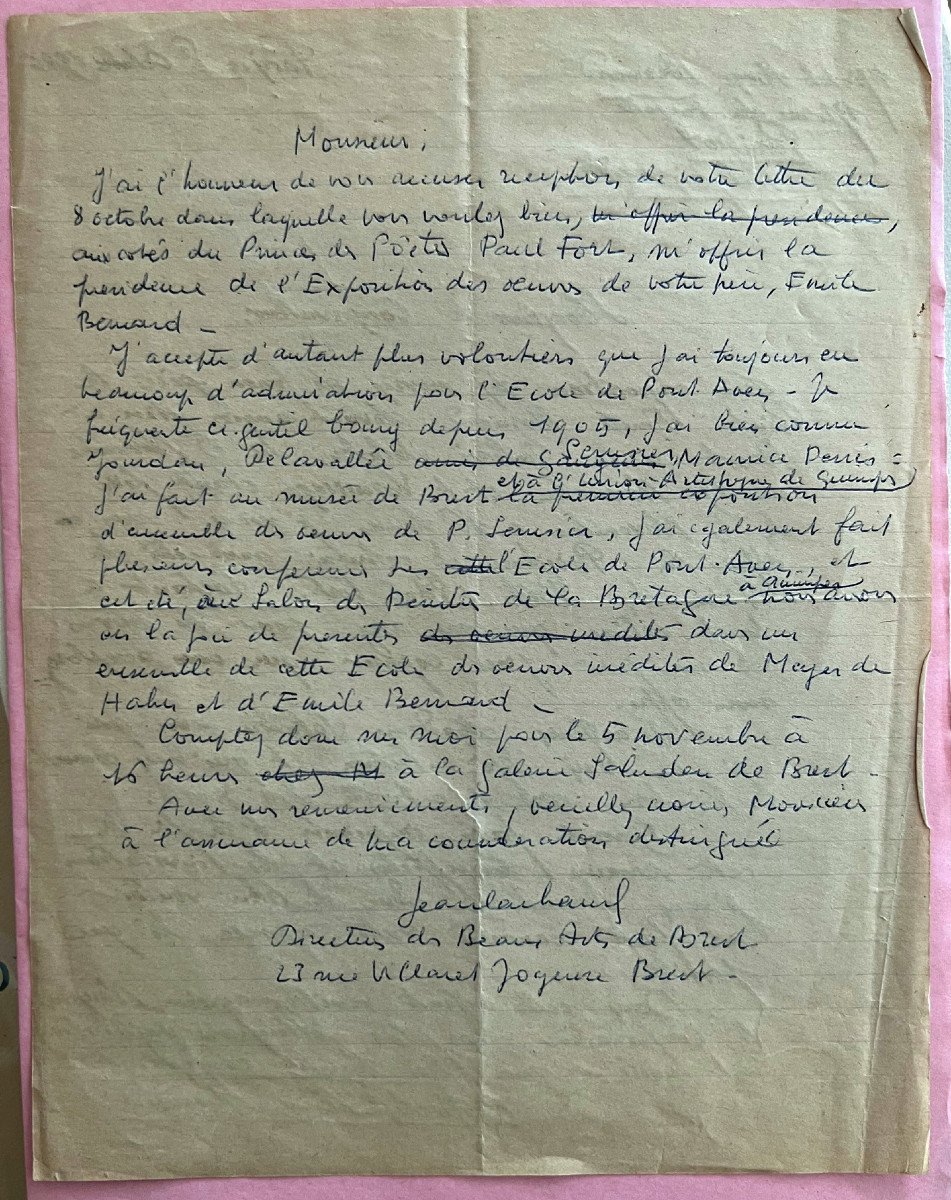 Monsieur,
J'ai l'honneur de vous accuser reception de votre lettre du
8 octobre dans laquelle vous voulez bien, m'offrir la presidence,
aux cotés du Prince des Poëtes Paul Fort, m'offrir la
presidence de l'Exposition des oeuvres de votre père, Emile
Bernard -
J'accepte d'autant plus volontiers que j'ai toujours eu
beaucoup d'admiration pour l'Ecole de Pont Aven - Je
fréquente ce gentil bourg depuis 1905, j'ai bien connu
Jourdan, Delavallée amis de Gauguin, Serusier, Maurice Denis -
j'ai fait au musée de Brest et à l'Union Artistique de Quimper la premiere exposition
d'ensemble des oeuvres de P. Serusier, j'ai également fait
plusieurs conferences sur cette l'Ecole de Pont-Aven, et
cet eté, au Salon des Peintres de la Bretagne à Quimper nous avons
eu la joie de presenter des oeuvres inedites dans un
ensemble de cette Ecole des oeuvres inédites de Meyer de
Hahn et d'Emile Bernard -
Comptez donc sur moi pour le 5 novembre à
16 heures chez M à la galerie Saluden de Brest -
Avec mes remerciements, veuillez Monsieur
à l'assurance de ma consideration distinguée
Jean Lachaud
Directeur des Beaux Arts de Brest
23 rue Joyeuse Brest -